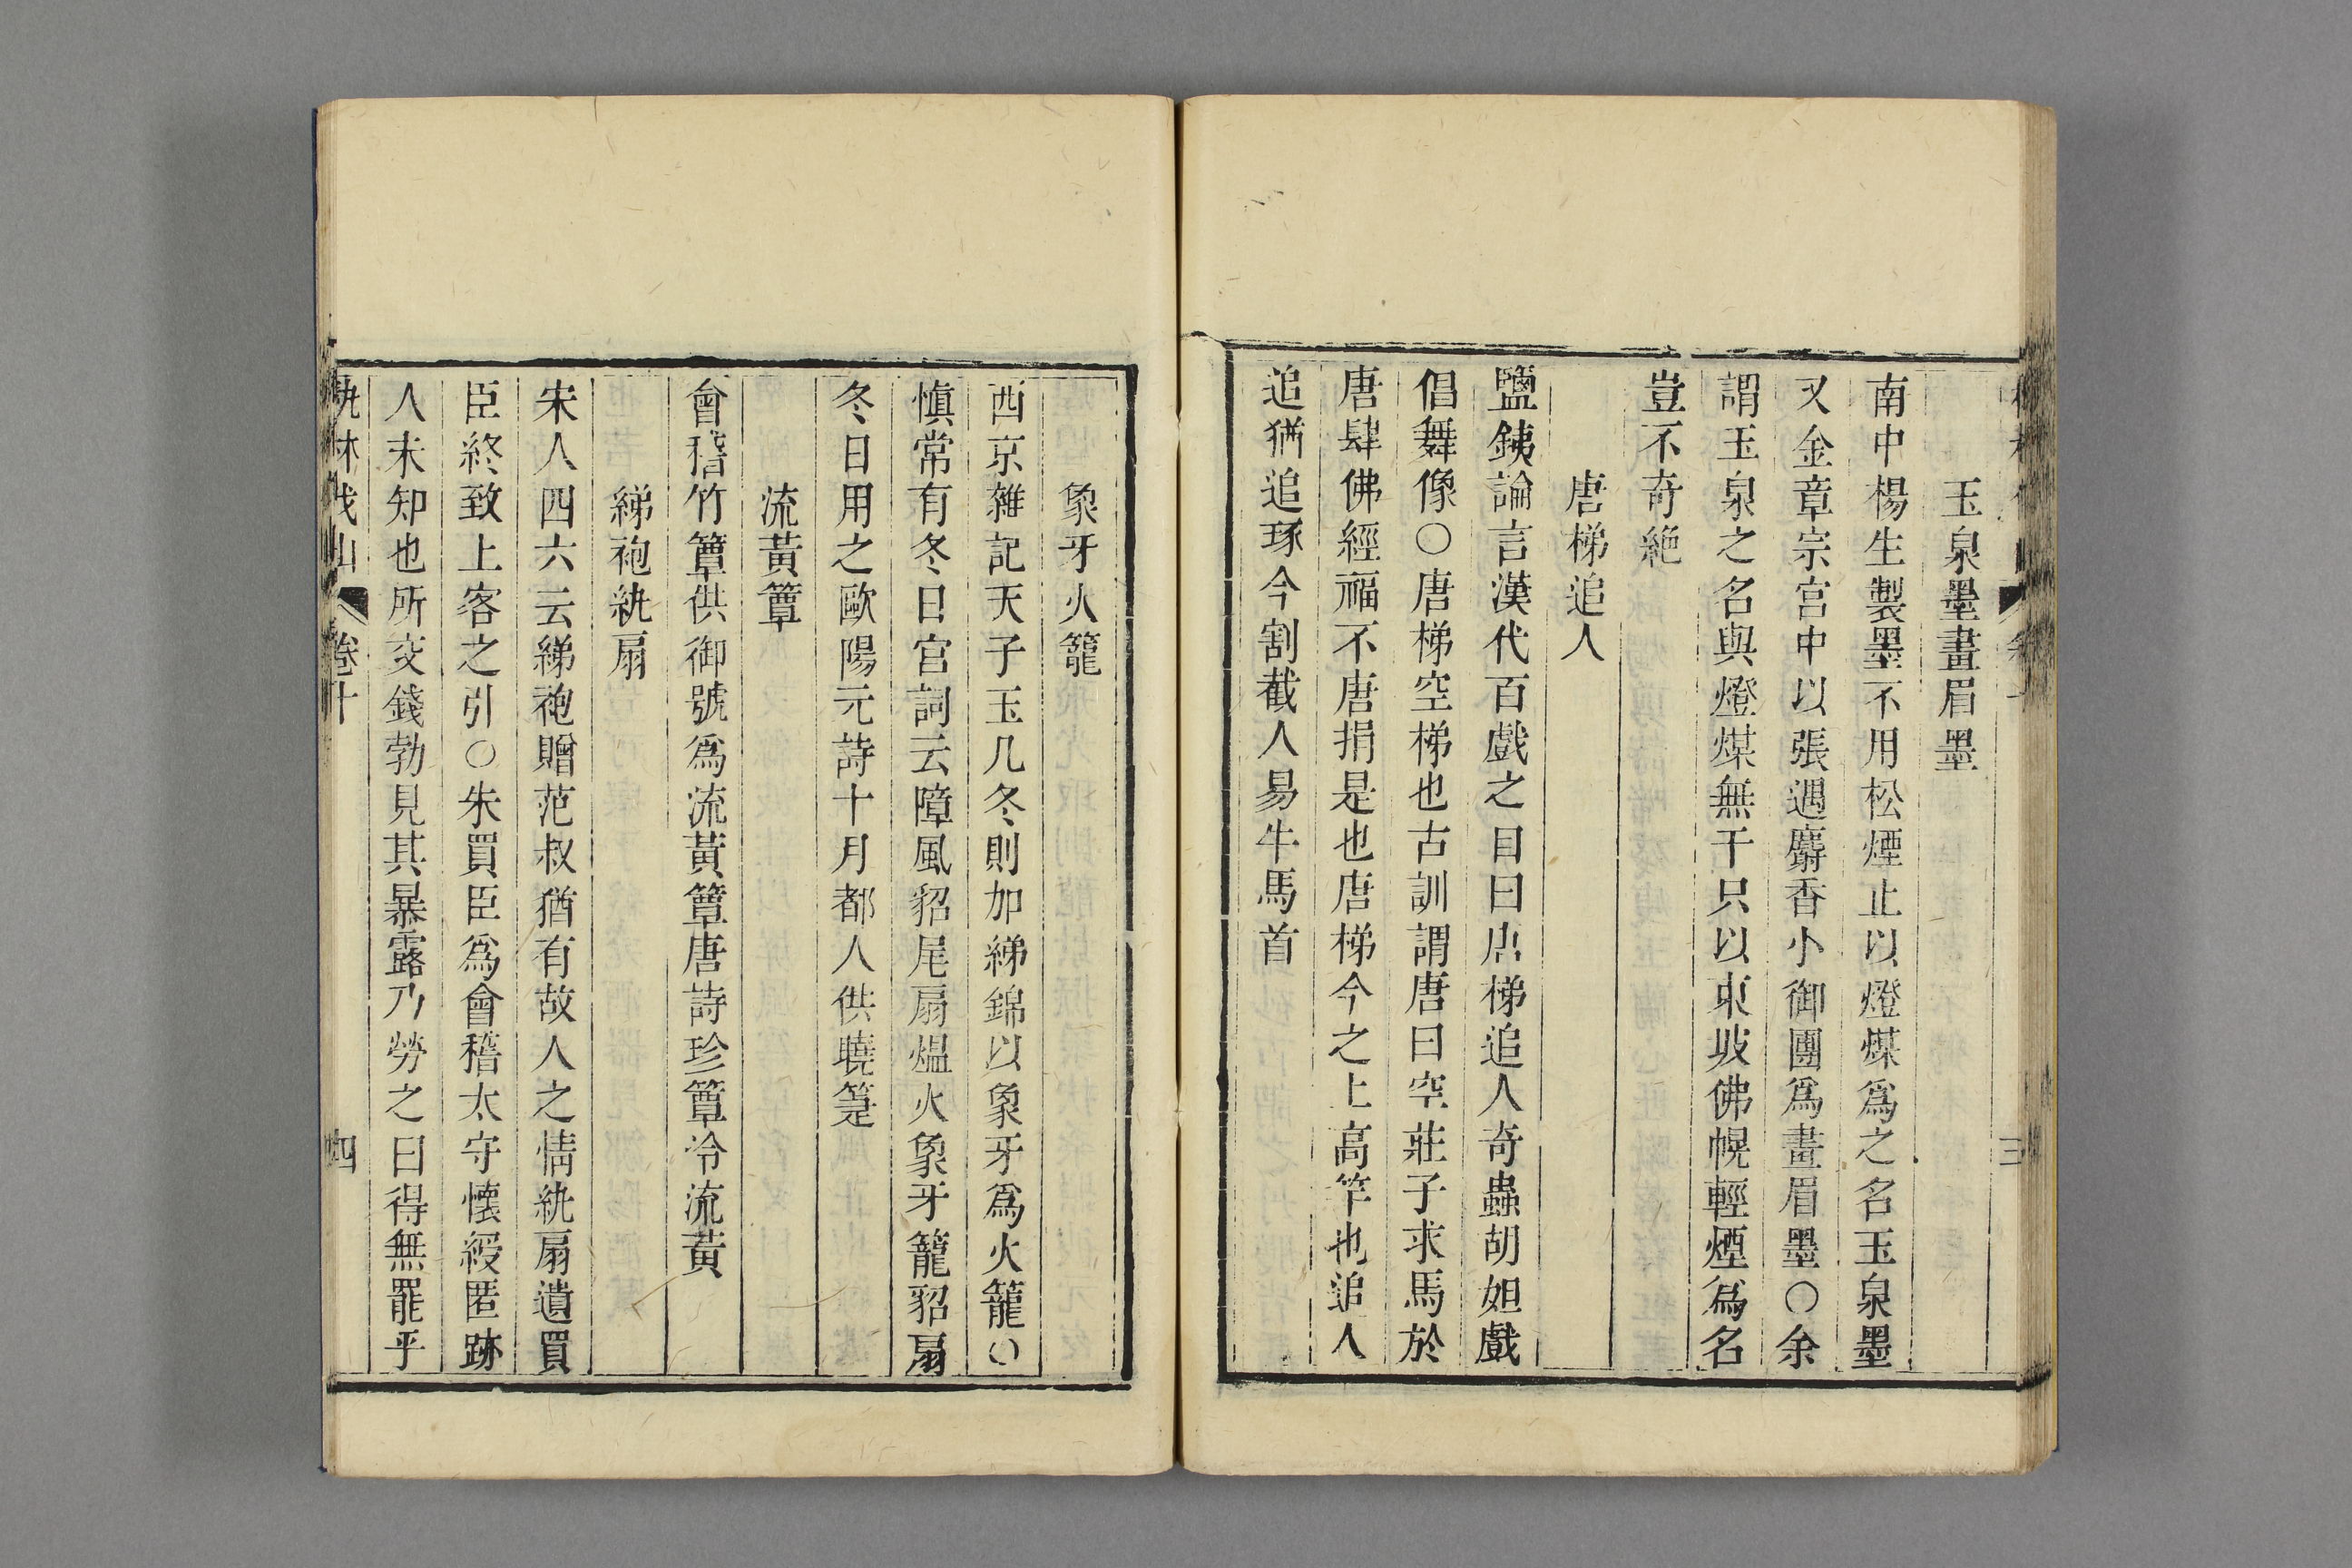 玉泉墨畫眉墨
南中楊生製墨不用松煙止以燈煤爲之名玉泉墨
又金章宗宫中以張遇麝香小御團爲畫眉墨○余
謂玉泉之名與燈煤無干只以東坡佛幌輕煙爲名
豈不奇絶
唐梯追人
鹽鐵論言漢代百戲之目曰唐梯追人奇蟲胡妲戲
倡舞像○唐梯空梯也古訓謂唐曰空莊子求馬於
唐肆佛經福不唐捐是也唐梯今之上高竿也追人
追猶追琢今割截人易牛馬首
三
象牙火籠
西京雜記天子玉几冬則加綈錦以象牙爲火籠○
慎常有冬日宫詞云障風貂尾扇熅火象牙籠貂扇
冬日用之歐陽元詩十月都人供暁箑
流黄簟
會稽竹簟供御號爲流黄簟唐詩珍簟冷流黄
綈袍紈扇
宋人四六云綈袍贈范叔猶有故人之情紈扇遺買
臣終致上客之引○朱買臣爲會稽太守懷綬匿跡
人未知也所交錢勃見其暴露乃勞之曰得無罷乎
林伐山 卷十 四